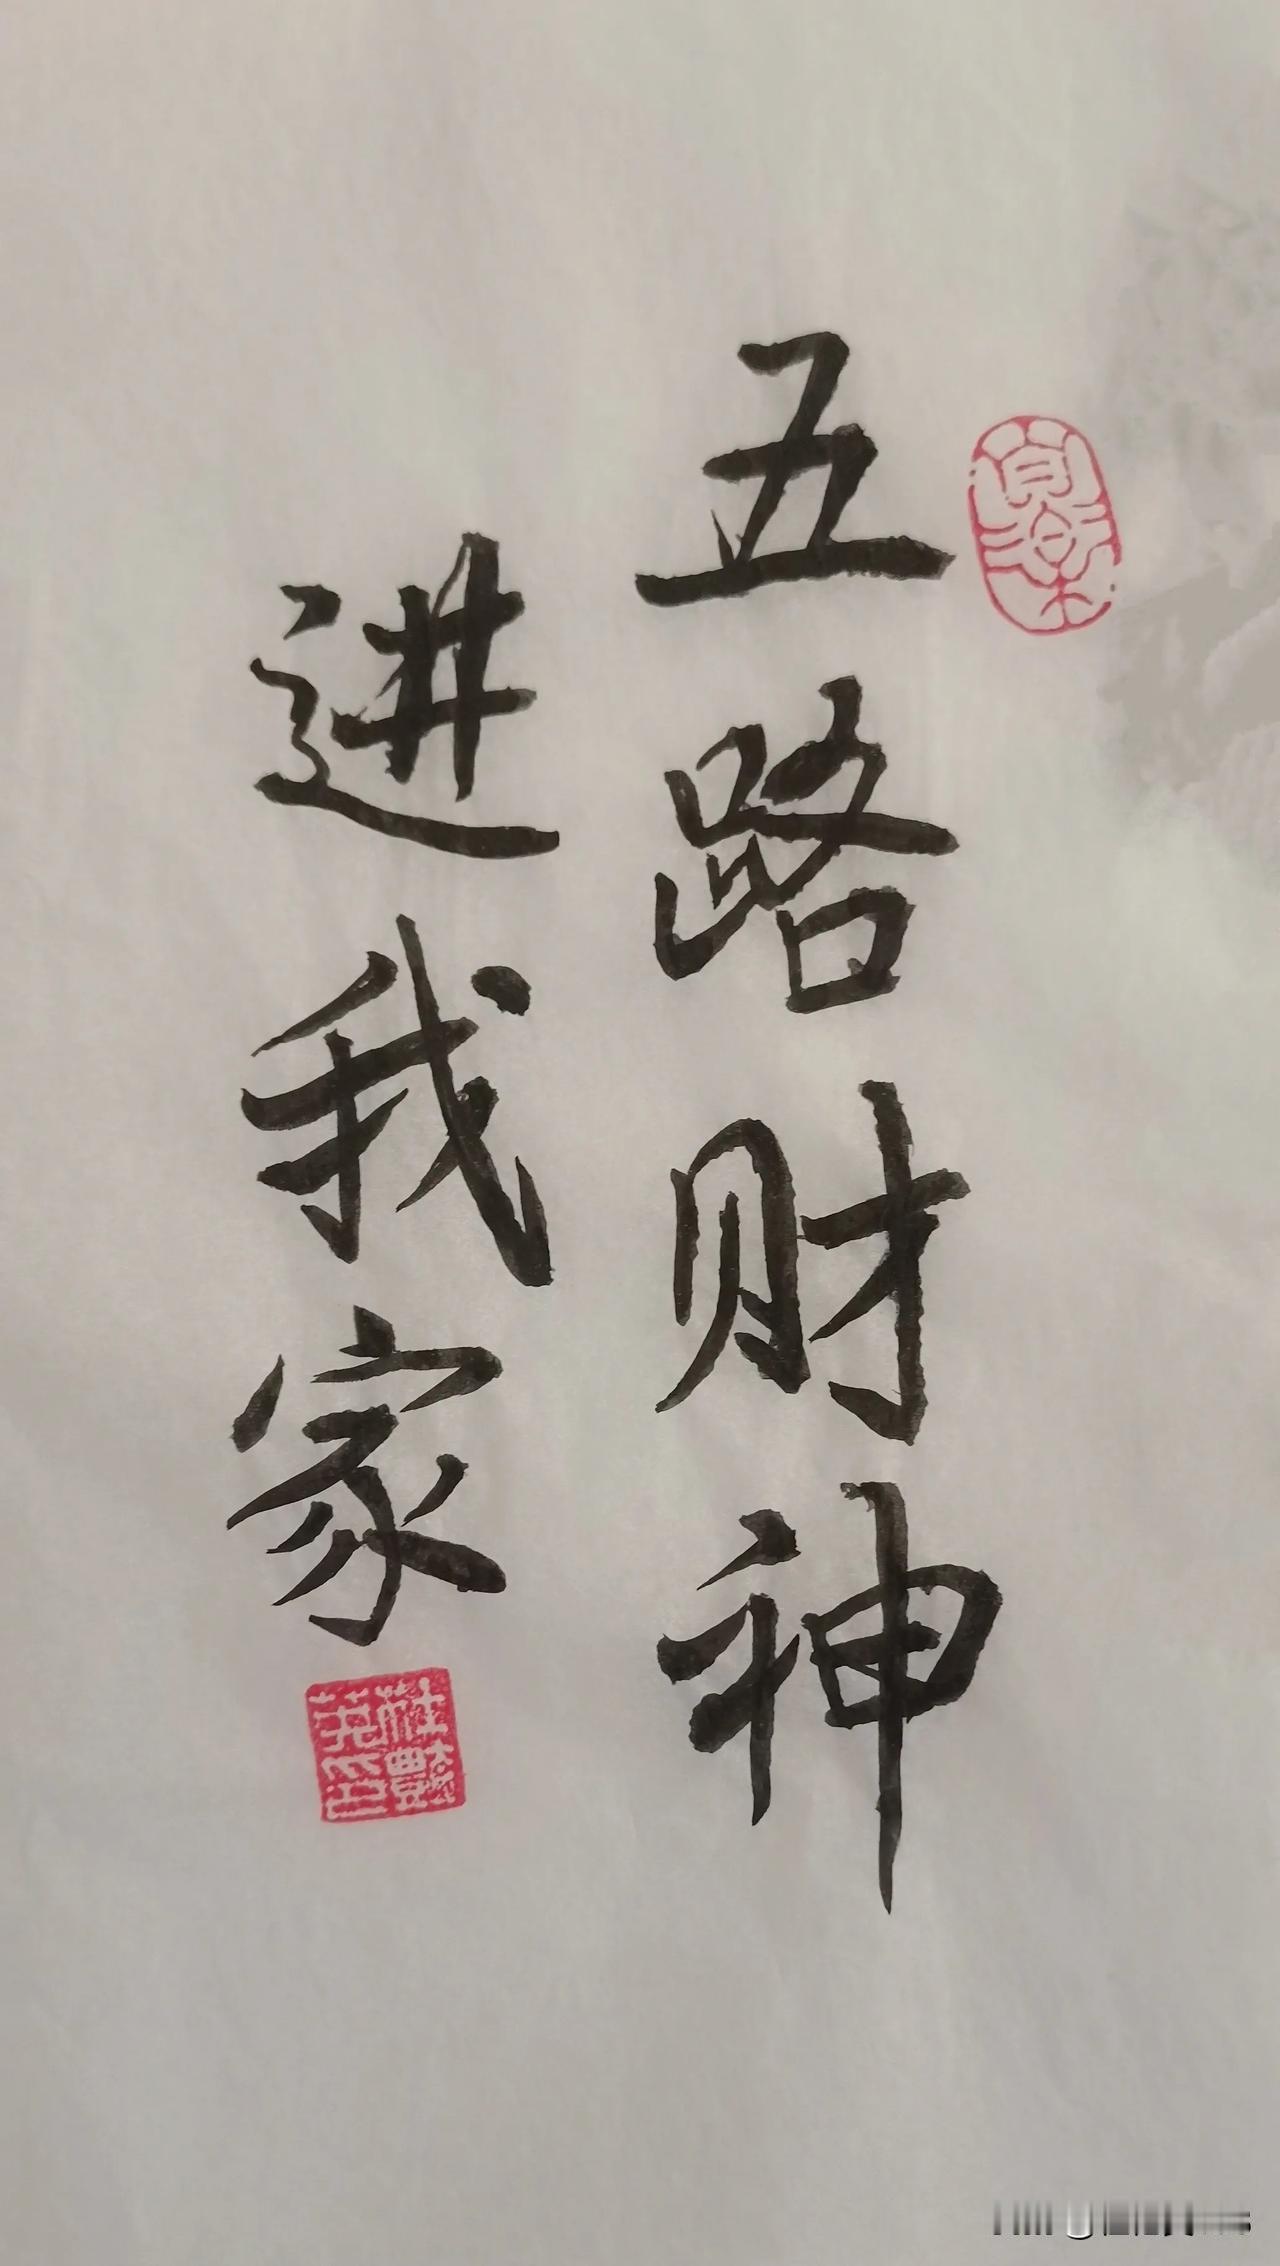 五路财神
进我家